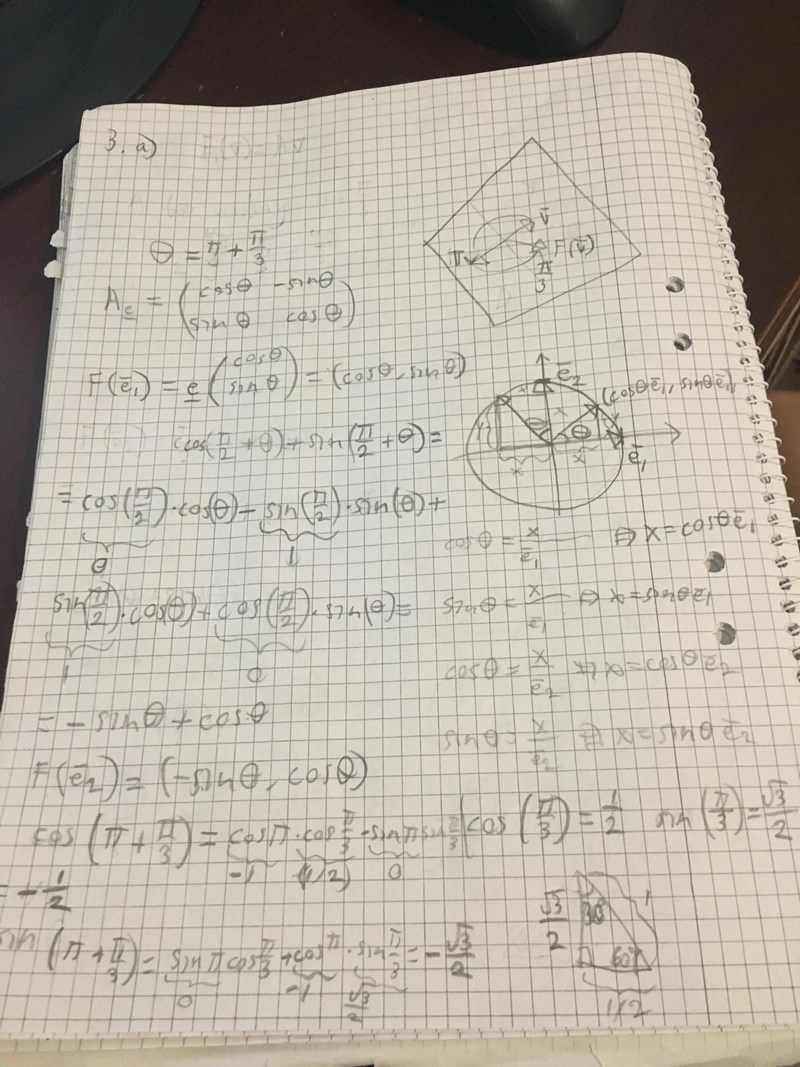 3. a)
θ = π + π/3
A_e = (cosθ -sinθ
sinθ cosθ)
v̄
π F(v̄)
π/3
F(ē₁) = e (cosθ
sinθ) = (cosθ, sinθ)
ē₂
(cosθē₁, sinθē₁)
θ θ
x x
ē₁
cos(π/2 + θ) + sin(π/2 + θ) =
= cos(π/2)·cos(θ) - sin(π/2)·sin(θ) +
0 1
cosθ = x/ē₁ ⇔ x = cosθē₁
sin(π/2)·cos(θ) + cos(π/2)·sin(θ) =
1 0
sinθ = x/ē₁ ⇔ x = sinθē₁
cosθ = x/ē₂ ⇔ x = cosθē₂
= -sinθ + cosθ
sinθ = x/ē₂ ⇔ x = sinθē₂
F(ē₂) = (-sinθ, cosθ)
cos(π + π/3) = cosπ·cos π/3 - sinπ sin π/3
-1 (1/2) 0
cos(π/3) = 1/2 sin(π/3) = √3/2
= -1/2
sin(π + π/3) = sinπ cos π/3 + cosπ·sin π/3 = -√3/2
0 -1 √3/2
√3/2 30 1
60°
1/2